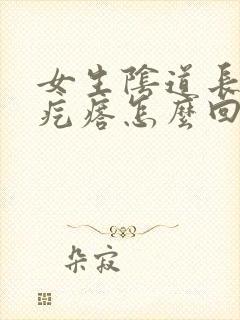 女生陰道長
疙瘩怎麼回
朵寂